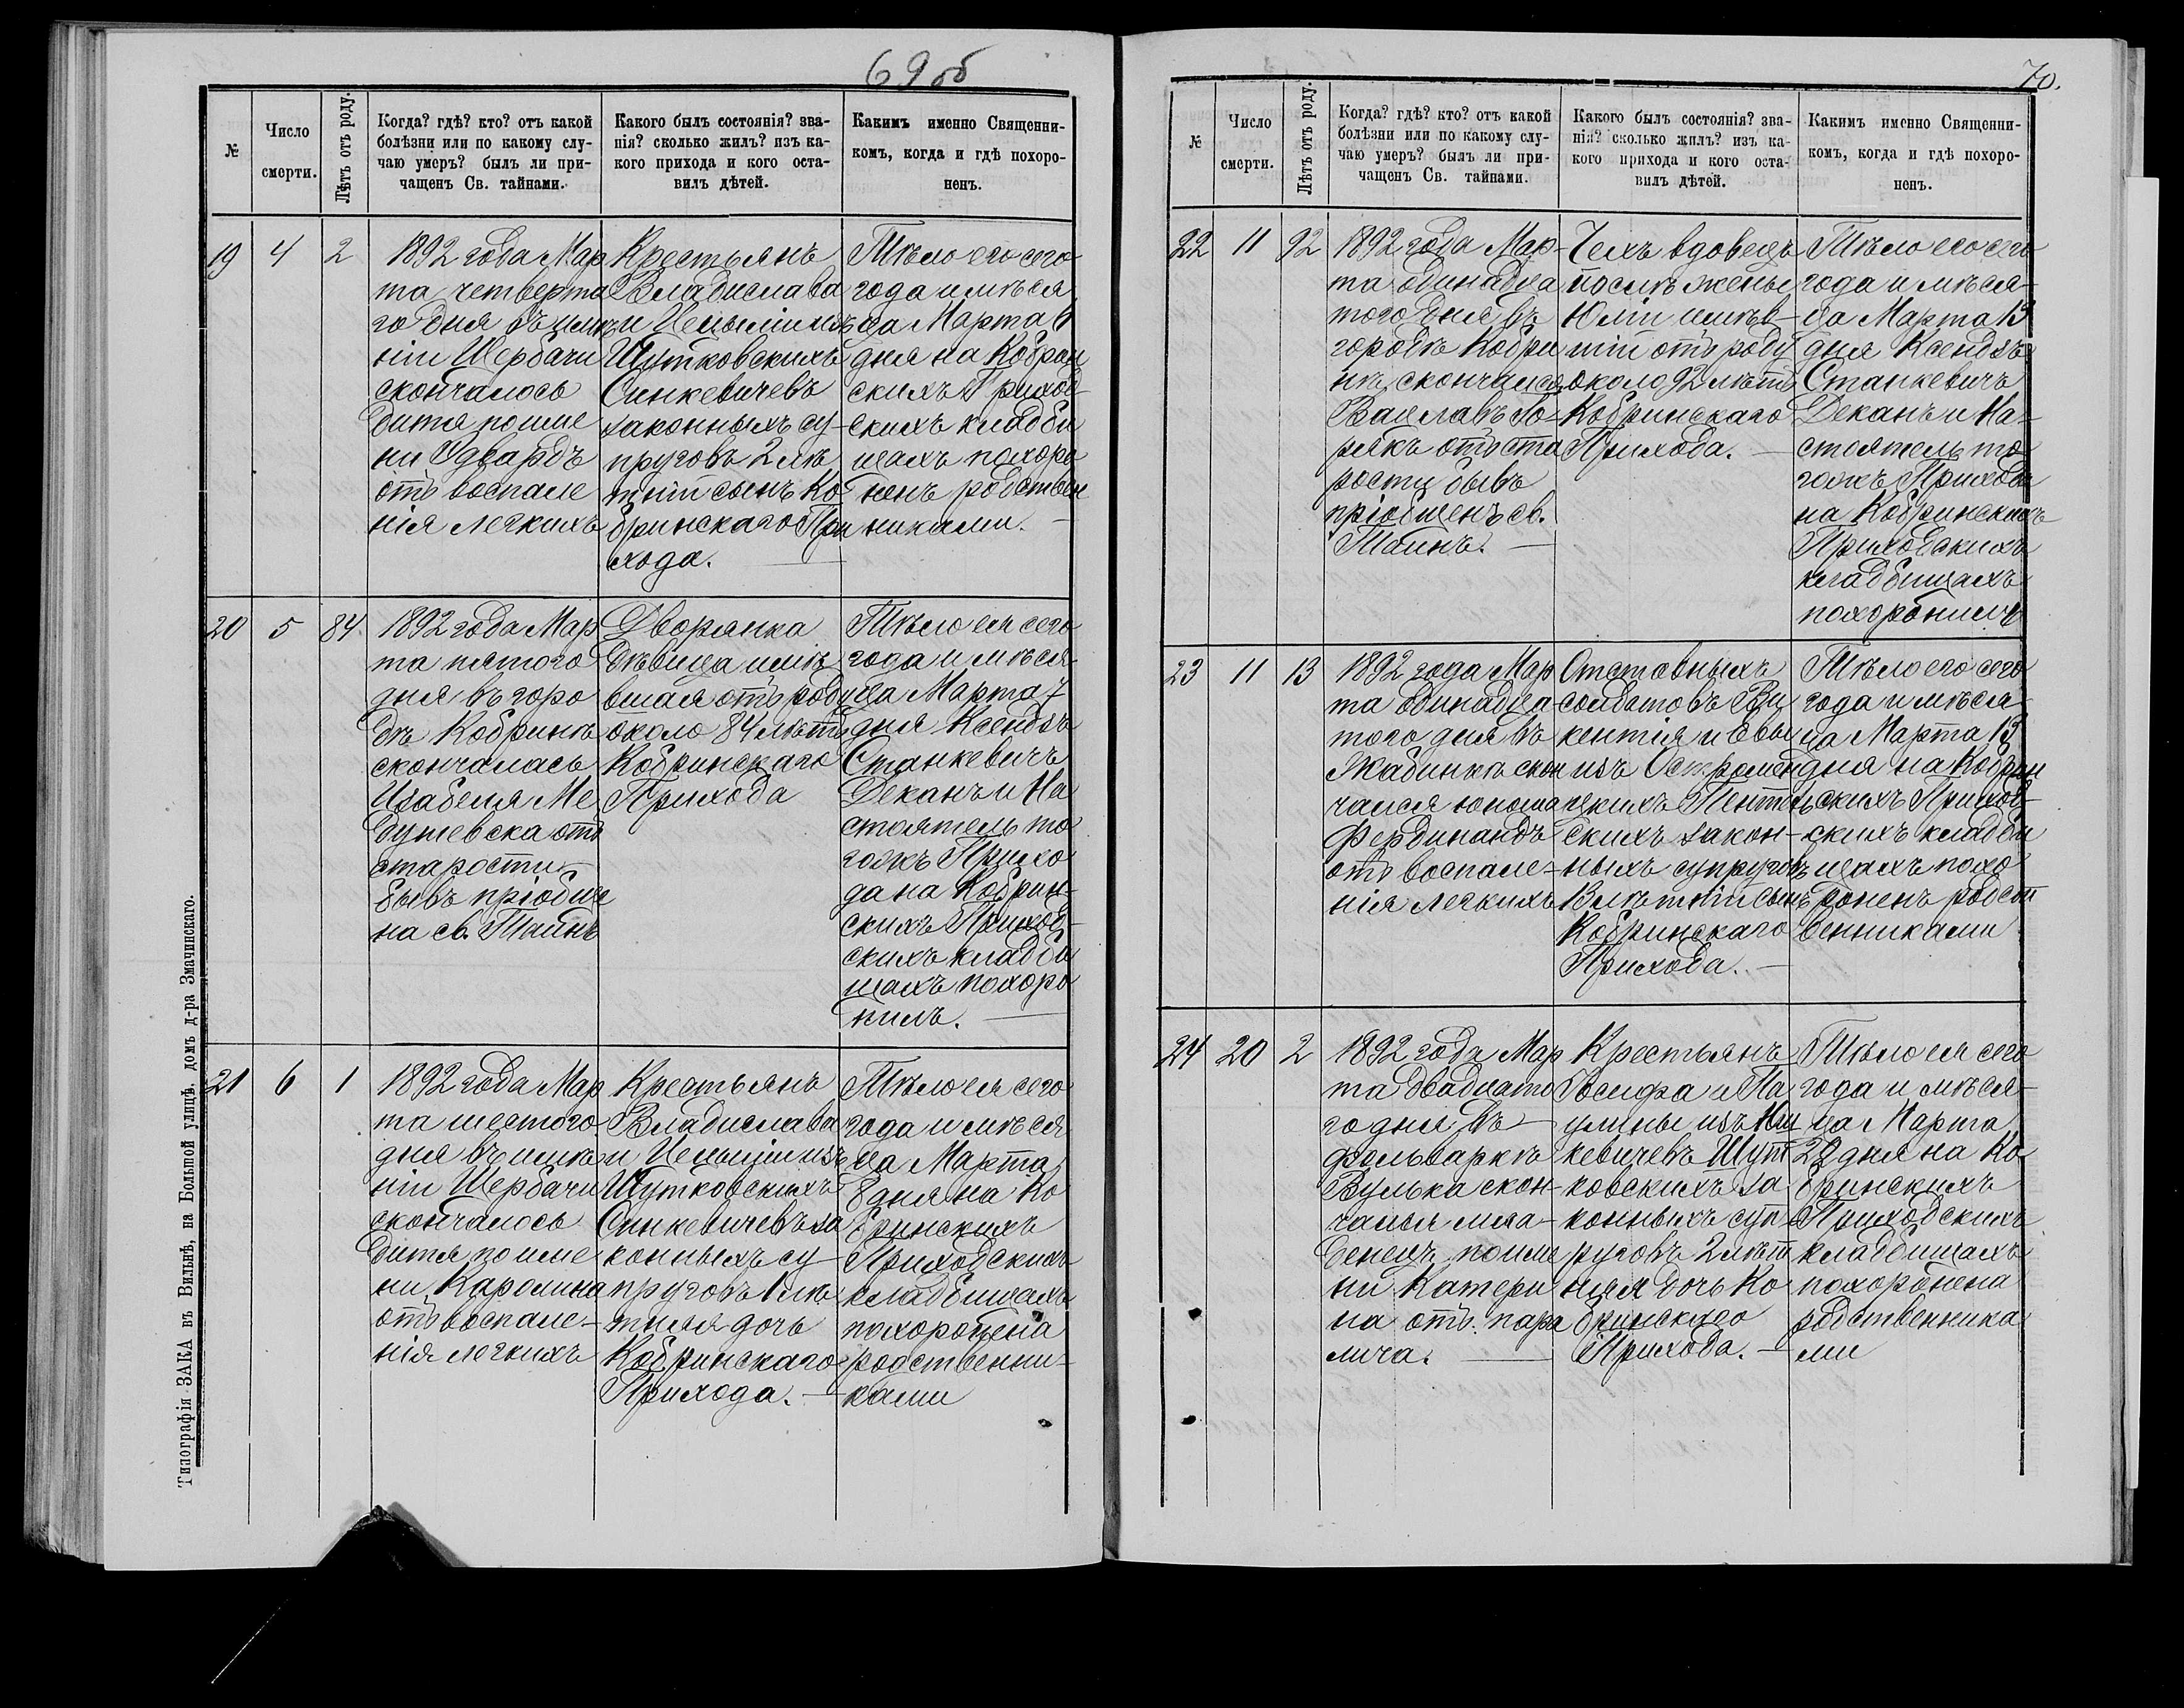 69об
№
Число
смерти.
Лѣтъ отъ роду.
Когда? гдѣ? кто? отъ какой
болѣзни или по какому слу-
чаю умеръ? былъ ли при-
чащенъ Св. тайнами.
Какого былъ состоянія? зва-
нія? сколько жилъ? изъ ка-
кого прихода и кого оста-
вилъ дѣтей.
Какимъ именно Священни-
комъ, когда и гдѣ похоро-
ненъ.
19
4
2
1892 года Мар
та четверта
го дня въ имѣ
ніи Щербачи
скончалось
дитя по име
ни Эдвардъ
отъ воспале
нія легкихъ
Крестьянъ
Владислава
и Цецыліи изъ
Шутковскихъ
Синкевичевъ
законныхъ су-
пруговъ 2 лѣ
тній сынъ Ко
бринскаго При
хода. —
Тѣло его сего
года и мѣся
ца Марта 6
дня на Кобрин
скихъ Приход-
скихъ кладби
щахъ похоро
ненъ родствен
никами. —
20
5
84.
1892 года Мар
та пятого
дня въ горо
дѣ Кобринѣ
скончалась
Изабеля Ме
душевска отъ
старости
бывъ пріобще
на св. Тайнъ
Дворянка
дѣвица имѣ
вшая отъ роду
около 84 лѣтъ
Кобринскаго
Прихода
Тѣло ея сего
года и мѣся-
ца Марта 7
дня Ксендзъ
Станкевичъ
Деканъ и На
стоятель то
гожъ Прихо
да на Кобрин-
скихъ Приход-
скихъ кладби
щахъ похоро
нилъ. —
21
6
1
1892 года Мар
та шестого
дня въ имѣ
ніи Щербачи
скончалось
дитя по име
ни Каролина
отъ воспале-
нія легкихъ
Крестьянъ
Владислава
и Цецыліи изъ
Шутковскихъ
Синкевичевъ за
конныхъ су-
пруговъ 1 лѣ
тняя дочь
Кобринскаго
Прихода. —
Тѣло ея сего
года и мѣся
ца Марта
8 дня на Ко
бринскихъ
Приходскихъ
кладбищахъ
похоронена
родственни-
ками
Типографія ЗАКА въ Вильнѣ, на Большой улицѣ, домъ д-ра Змачинскаго.
70.
№
Число
смерти.
Лѣтъ отъ роду.
Когда? гдѣ? кто? отъ какой
болѣзни или по какому слу-
чаю умеръ? былъ ли при-
чащенъ Св. тайнами.
Какого былъ состоянія? зва-
нія? сколько жилъ? изъ ка-
кого прихода и кого оста-
вилъ дѣтей.
Какимъ именно Священни-
комъ, когда и гдѣ похоро-
ненъ.
22
11
92
1892 года Мар-
та одинадца
того дня въ
городѣ Кобри
нѣ скончался
Вацлавъ Го-
рякъ отъ ста
рости бывъ
пріобщенъ св.
Тайнъ. —
Чехъ вдовецъ
послѣ жены
Юліи имѣв-
шій отъ роду
около 92 лѣтъ
Кобринскаго
Прихода. —
Тѣло его сего
года и мѣся-
ца Марта 13
дня Ксендзъ
Станкевичъ
Деканъ и На-
стоятель то
гожъ Прихода
на Кобринскихъ
Приходскихъ
кладбищахъ
похоронилъ
23
11
13
1892 года Мар
та одинадца-
того дня въ
Жабинкѣ скон
чался юноша
Фердинандъ
отъ воспале-
нія легкихъ
Отставныхъ
солдатовъ Ви
кентія и Евы
изъ Остромен
цкихъ Пентель
скихъ закон-
ныхъ супруговъ
13 лѣтній сынъ
Кобринскаго
Прихода. —
Тѣло его сего
года и мѣся
ца Марта 13
дня на Кобрин
скихъ Приход-
скихъ кладби
щахъ похо
роненъ родст
венниками
24
20
2
1892 года Мар
та двадцато
го дня въ
фольваркѣ
Вулька скон-
чался мла-
денецъ по име
ни Катери
на отъ пара
лича. —
Крестьянъ
Іосифа и Па
улины изъ Ми
кевичевъ Шут
ковскихъ за
конныхъ суп-
руговъ 2 лѣт
няя дочь Ко
бринскаго
Прихода. —
Тѣло ея сего
года и мѣся-
ца Марта
22 дня на Ко
бринскихъ
Приходскихъ
кладбищахъ
похоронена
родственника
ми